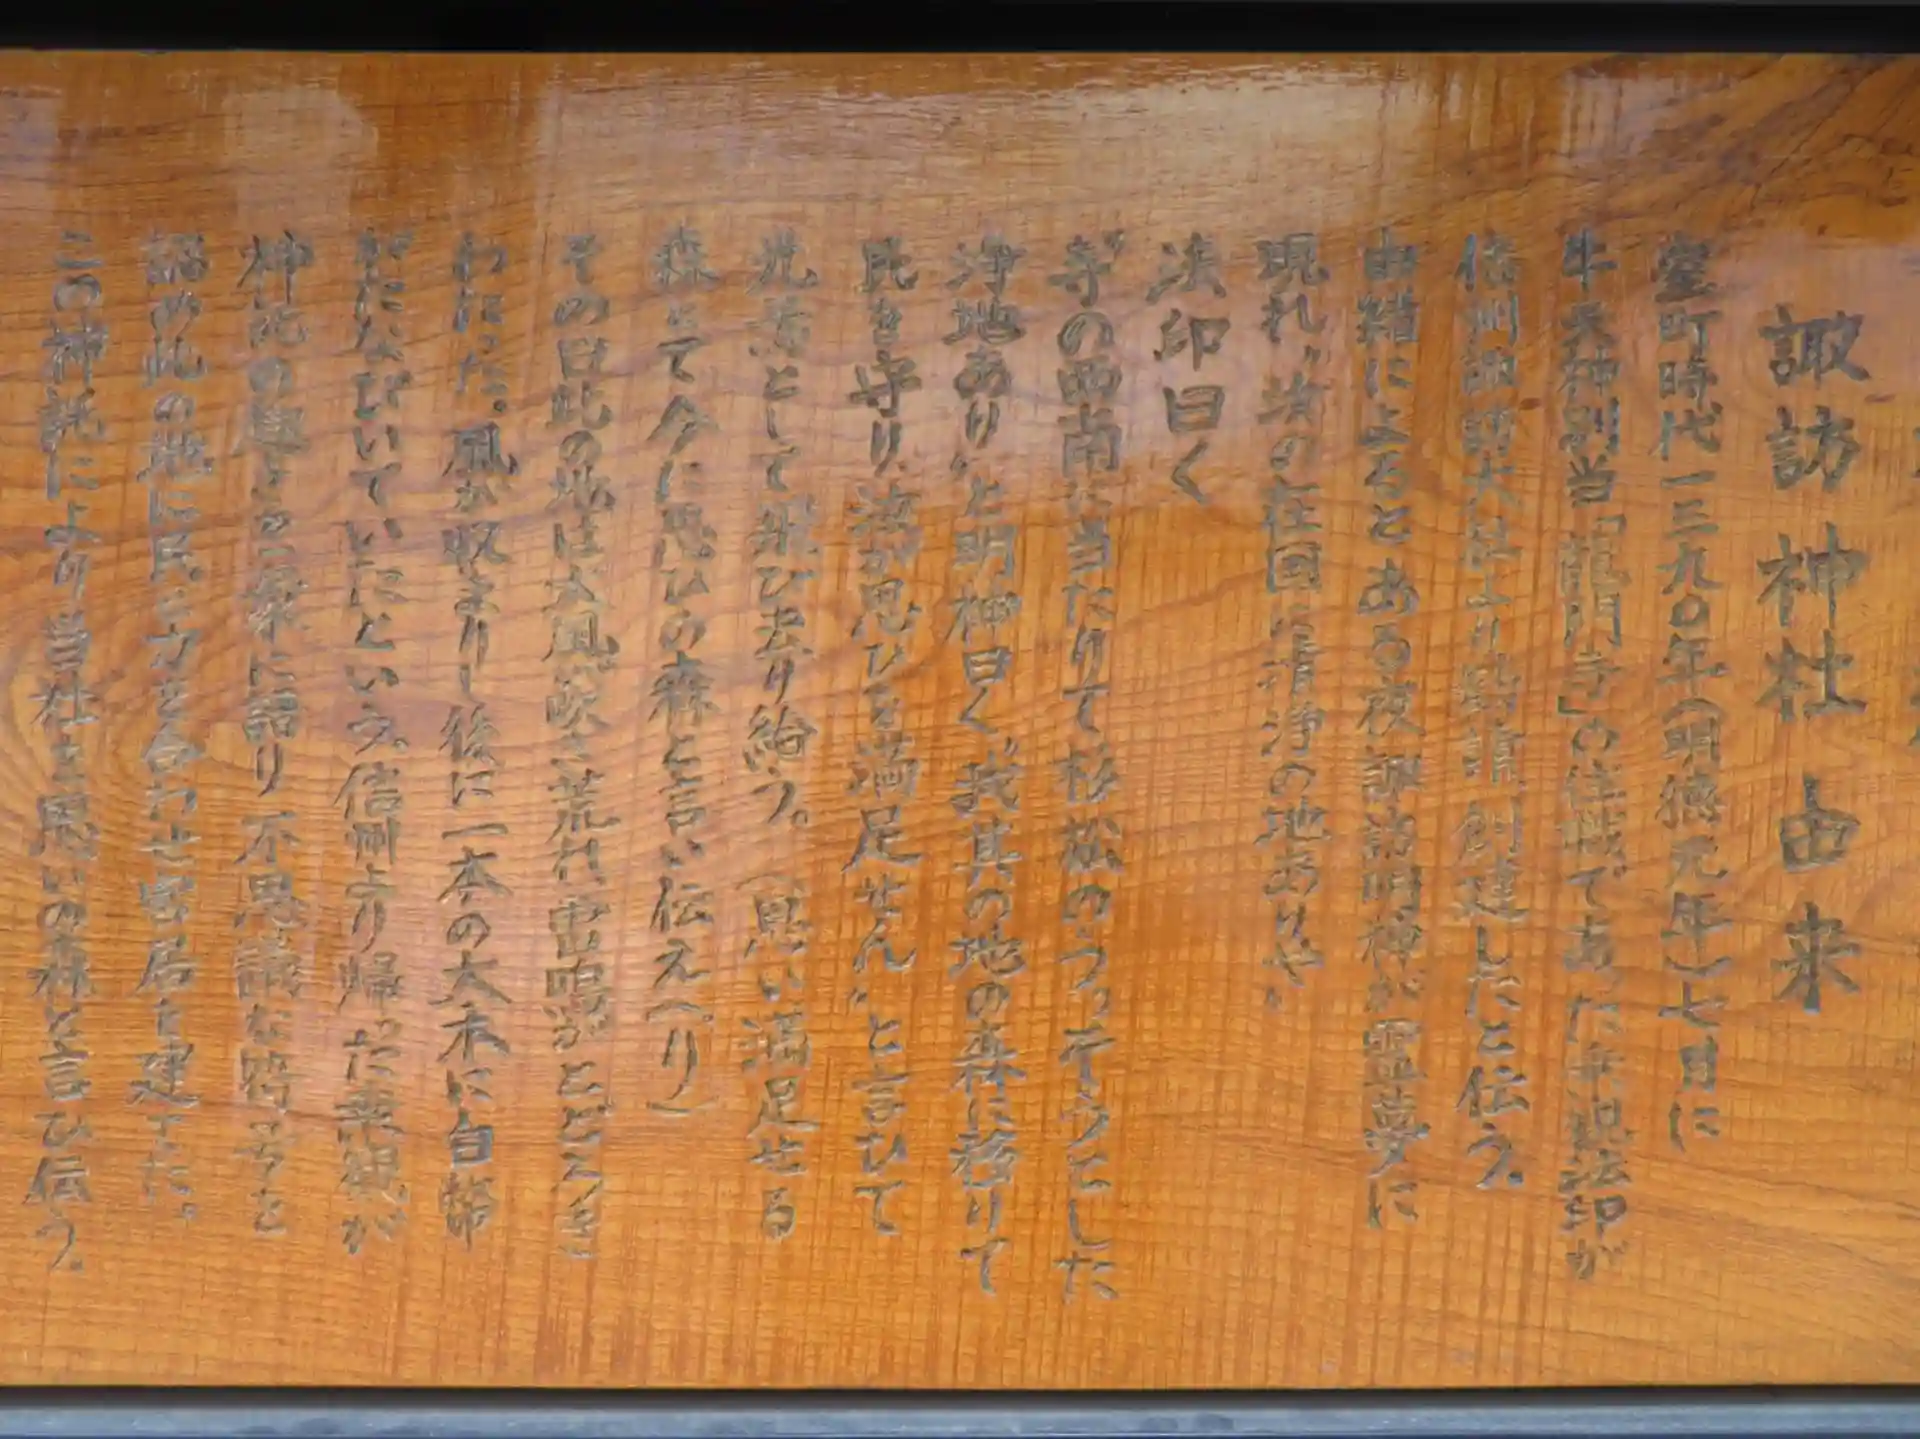 諏訪神社由来
室町時代一三九〇年（明徳元年）七月に
牛天神別当「龍門寺」の住職であった乗観法印が
信州諏訪大社より勧請創建したと伝う。
由緒によるとある夜諏訪明神が霊夢に
現れ〝汝の在国に清浄の地ありや〟
法印曰く
〝寺の西南に当たりて杉松のうっそうとした
浄地あり〟と明神曰く〝我其の地の森に移りて
民を守り、汝が思ひを満足せん〟と言ひて
光黄として飛び去り給う。（思い満足せる
森とて今に思ひの森と言い伝えへり）
その日此の地は大風吹き荒れ雷鳴がとどろき
わたった。風が収まりし後に一本の大木に白幣
がたなびいていたという。信州より帰った乗観が
神託の趣きを衆に語り不思議な符号と
認め此の地に民と力を合わせ宮居を建てた。
この神託により当社を思いの森と言ひ伝う。